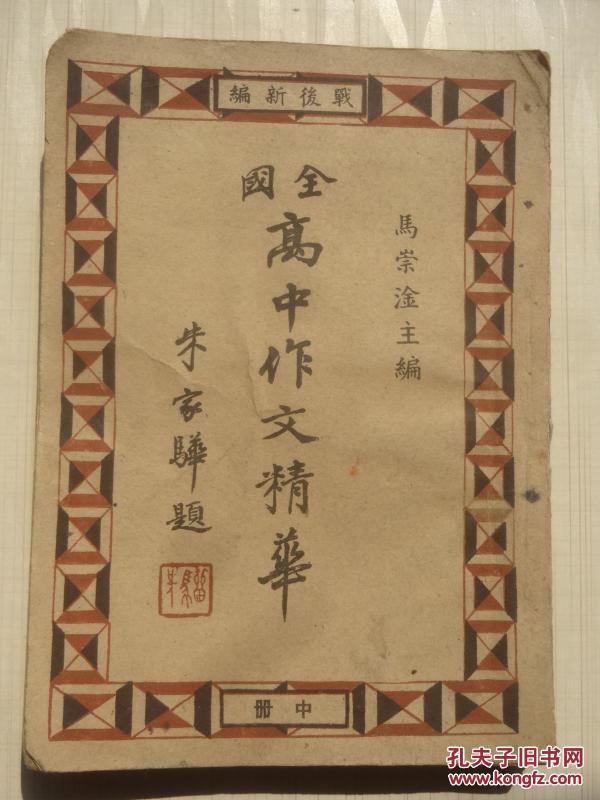 戰後新編
馬崇淦主編
全國
高中作文精華
朱家驊題
中冊
孔夫子旧书网
www.kongfz.com